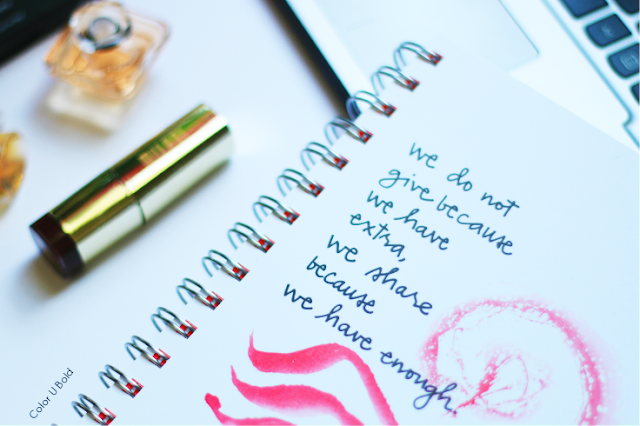 we do not
give because
we have
extra,
we share
because
we have enough.
Color U Bold